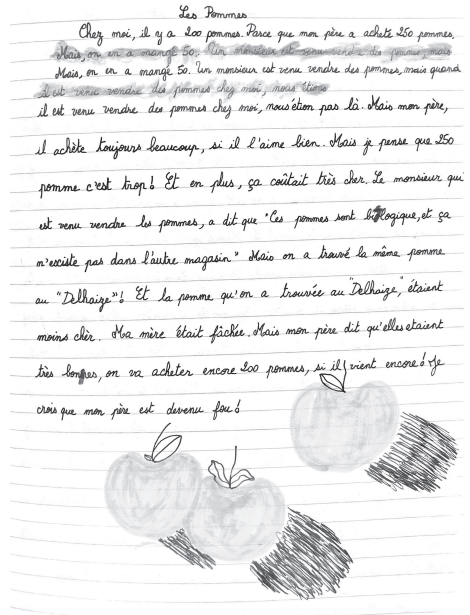 Les Pommes
Chez moi, il y a 200 pommes. Parce que mon père a acheté 250 pommes.
Mais, on en a mangé 50. Un monsieur est venu vendre des pommes, mais
Mais, on en a mangé 50. Un monsieur est venu vendre des pommes, mais quand
il est venu vendre des pommes chez moi, nous étions
il est venu vendre des pommes chez moi, nous étion pas là. Mais mon père,
il achète toujours beaucoup, si il l'aime bien. Mais je pense que 250
pomme c'est trop! Et en plus, ça coûtait très cher. Le monsieur qui
est venu vendre les pommes, a dit que "Ces pommes sont biologique, et ça
n'esciste pas dans l'autre magasin" Mais on a trouvé la même pomme
au "Delhaize"! Et la pomme qu'on a trouvée au "Delhaize", étaient
moins chèr. Ma mère était fâchée. Mais mon père dit qu'elles etaient
très bonnes, on va acheter encore 200 pommes, si il vient encore! Je
crois que mon père est devenu fou!